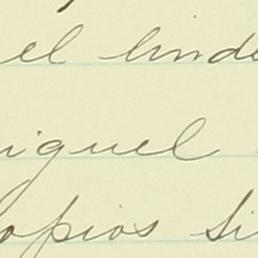 el linde
iguel
opios si